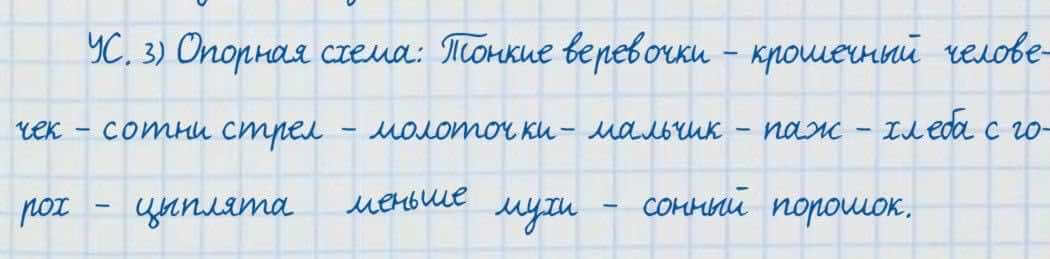 УС. 3) Опорная схема: Тонкие веревочки – крошечный челове-
чек – сотни стрел – молоточки – мальчик – паж – хлеба с го-
рох – цыплята меньше мухи – сонный порошок.